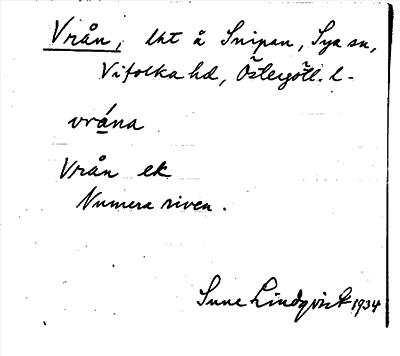 Vrån, lht å Snipan, Sya sn,
Vifolka hd, Östergötl. l-
vrána
Vrån ek
Numera riven.
Sune Lindqvist 1934